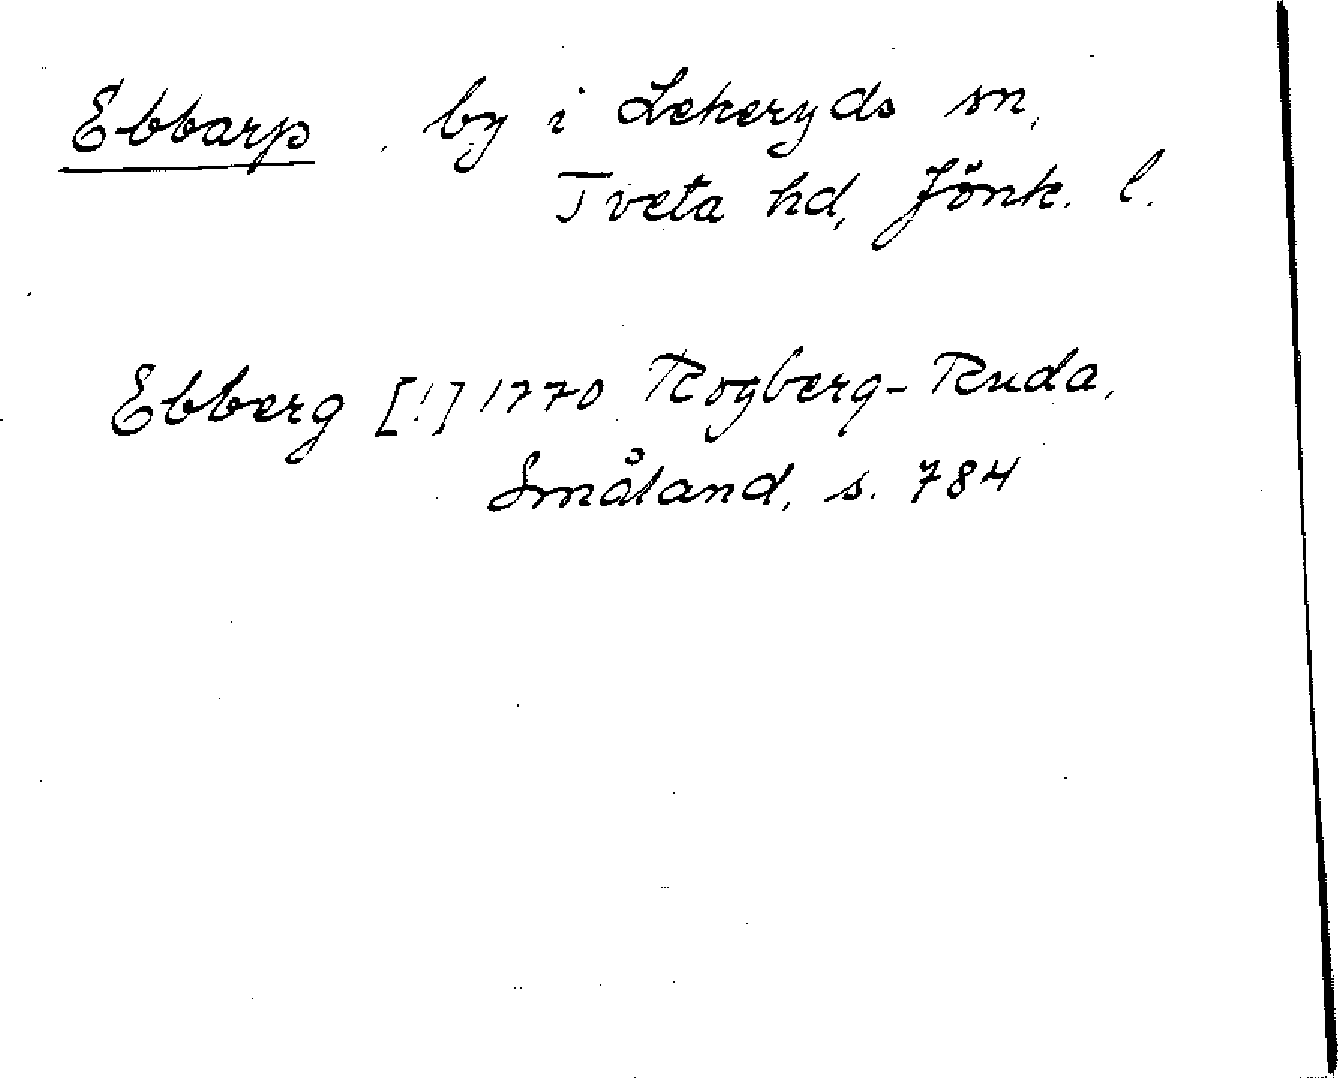 Ebbarp, by i Lekeryds sn,
Tveta hd, Jönk. l.
Ebberg [!] 1770 Rogberg-Ruda,
Småland, s. 784